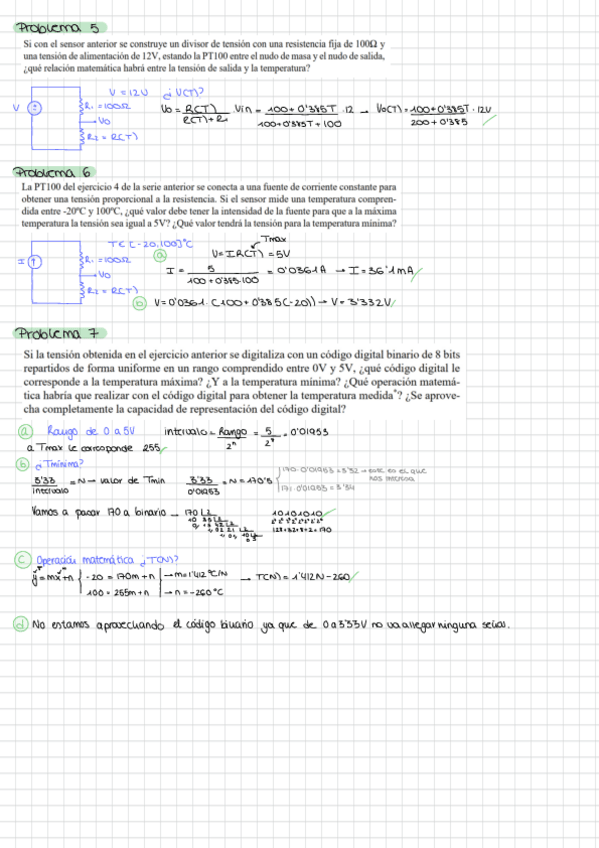 Problema 5
Si con el sensor anterior se construye un divisor de tensión con una resistencia fija de 100Ω y
una tensión de alimentación de 12V, estando la PT100 entre el nudo de masa y el nudo de salida,
¿qué relación matemática habrá entre la tensión de salida y la temperatura?
V = 12V ¿V(T)?
V R1 = 100Ω
Vo
R2 = R(T)
Vo = R(T) / R(T)+R1 · Vin = 100+0'385T / 100+0'385T+100 · 12 → Vo(T) = 100+0'385T / 200+0'385 · 12V
Problema 6
La PT100 del ejercicio 4 de la serie anterior se conecta a una fuente de corriente constante para
obtener una tensión proporcional a la resistencia. Si el sensor mide una temperatura compren-
dida entre -20ºC y 100ºC, ¿qué valor debe tener la intensidad de la fuente para que a la máxima
temperatura la tensión sea igual a 5V? ¿Qué valor tendrá la tensión para la temperatura mínima?
T∈[-20,100]°C
I R1 = 100Ω
Vo
R2 = R(T)
Tmax
a V = I R(T) = 5V
I = 5 / 100+0'385·100 = 0'0361A → I = 36'1mA
b V = 0'0361·(100+0'385(-20)) → V = 3'332V
Problema 7
Si la tensión obtenida en el ejercicio anterior se digitaliza con un código digital binario de 8 bits
repartidos de forma uniforme en un rango comprendido entre 0V y 5V, ¿qué código digital le
corresponde a la temperatura máxima? ¿Y a la temperatura mínima? ¿Qué operación matemá-
tica habría que realizar con el código digital para obtener la temperatura medida"? ¿Se aprove-
cha completamente la capacidad de representación del código digital?
a Rango de 0 a 5V intervalo = Rango / 2ⁿ = 5 / 2⁸ = 0'01953
a Tmax le corresponde 255
b ¿Tmínima?
3'33 / intervalo = N → valor de Tmin 3'33 / 0'01953 = N = 170'5
170·0'01953 = 3'32 → este es el que nos interesa
171·0'01953 = 3'34
Vamos a pasar 170 a binario → 170 L2
10101010
128+32+8+2 = 170
c Operación matemática ¿T(N)?
y = mx+n { -20 = 170m+n → m = 1'412 °C/N → T(N) = 1'412N-260
100 = 255m+n → n = -260 °C
d No estamos aprovechando el código binario ya que de 0 a 3'33V no va a llegar ninguna señal.